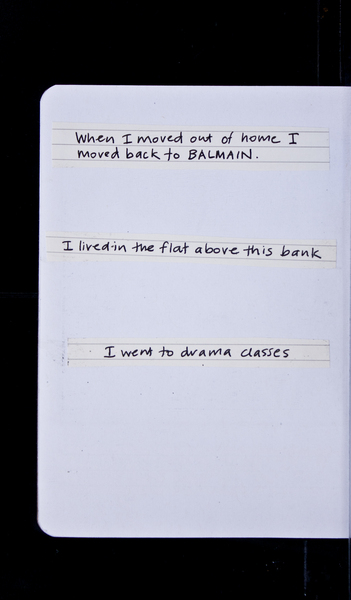 When I moved out of home I
moved back to BALMAIN.
I lived in the flat above this bank
I went to drama classes